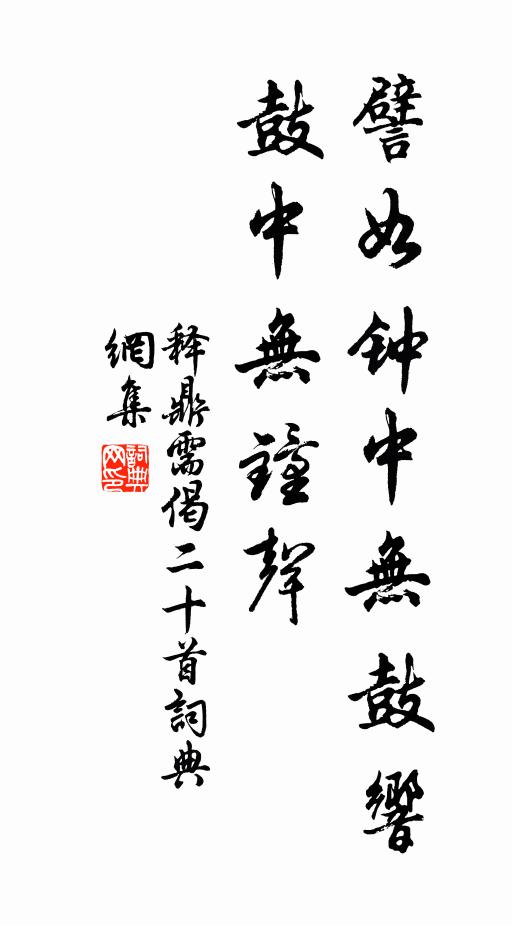 譬如钟中無鼓響
鼓中無鐘聲
释鼎需偈二十首詞典
網集
詞典网印